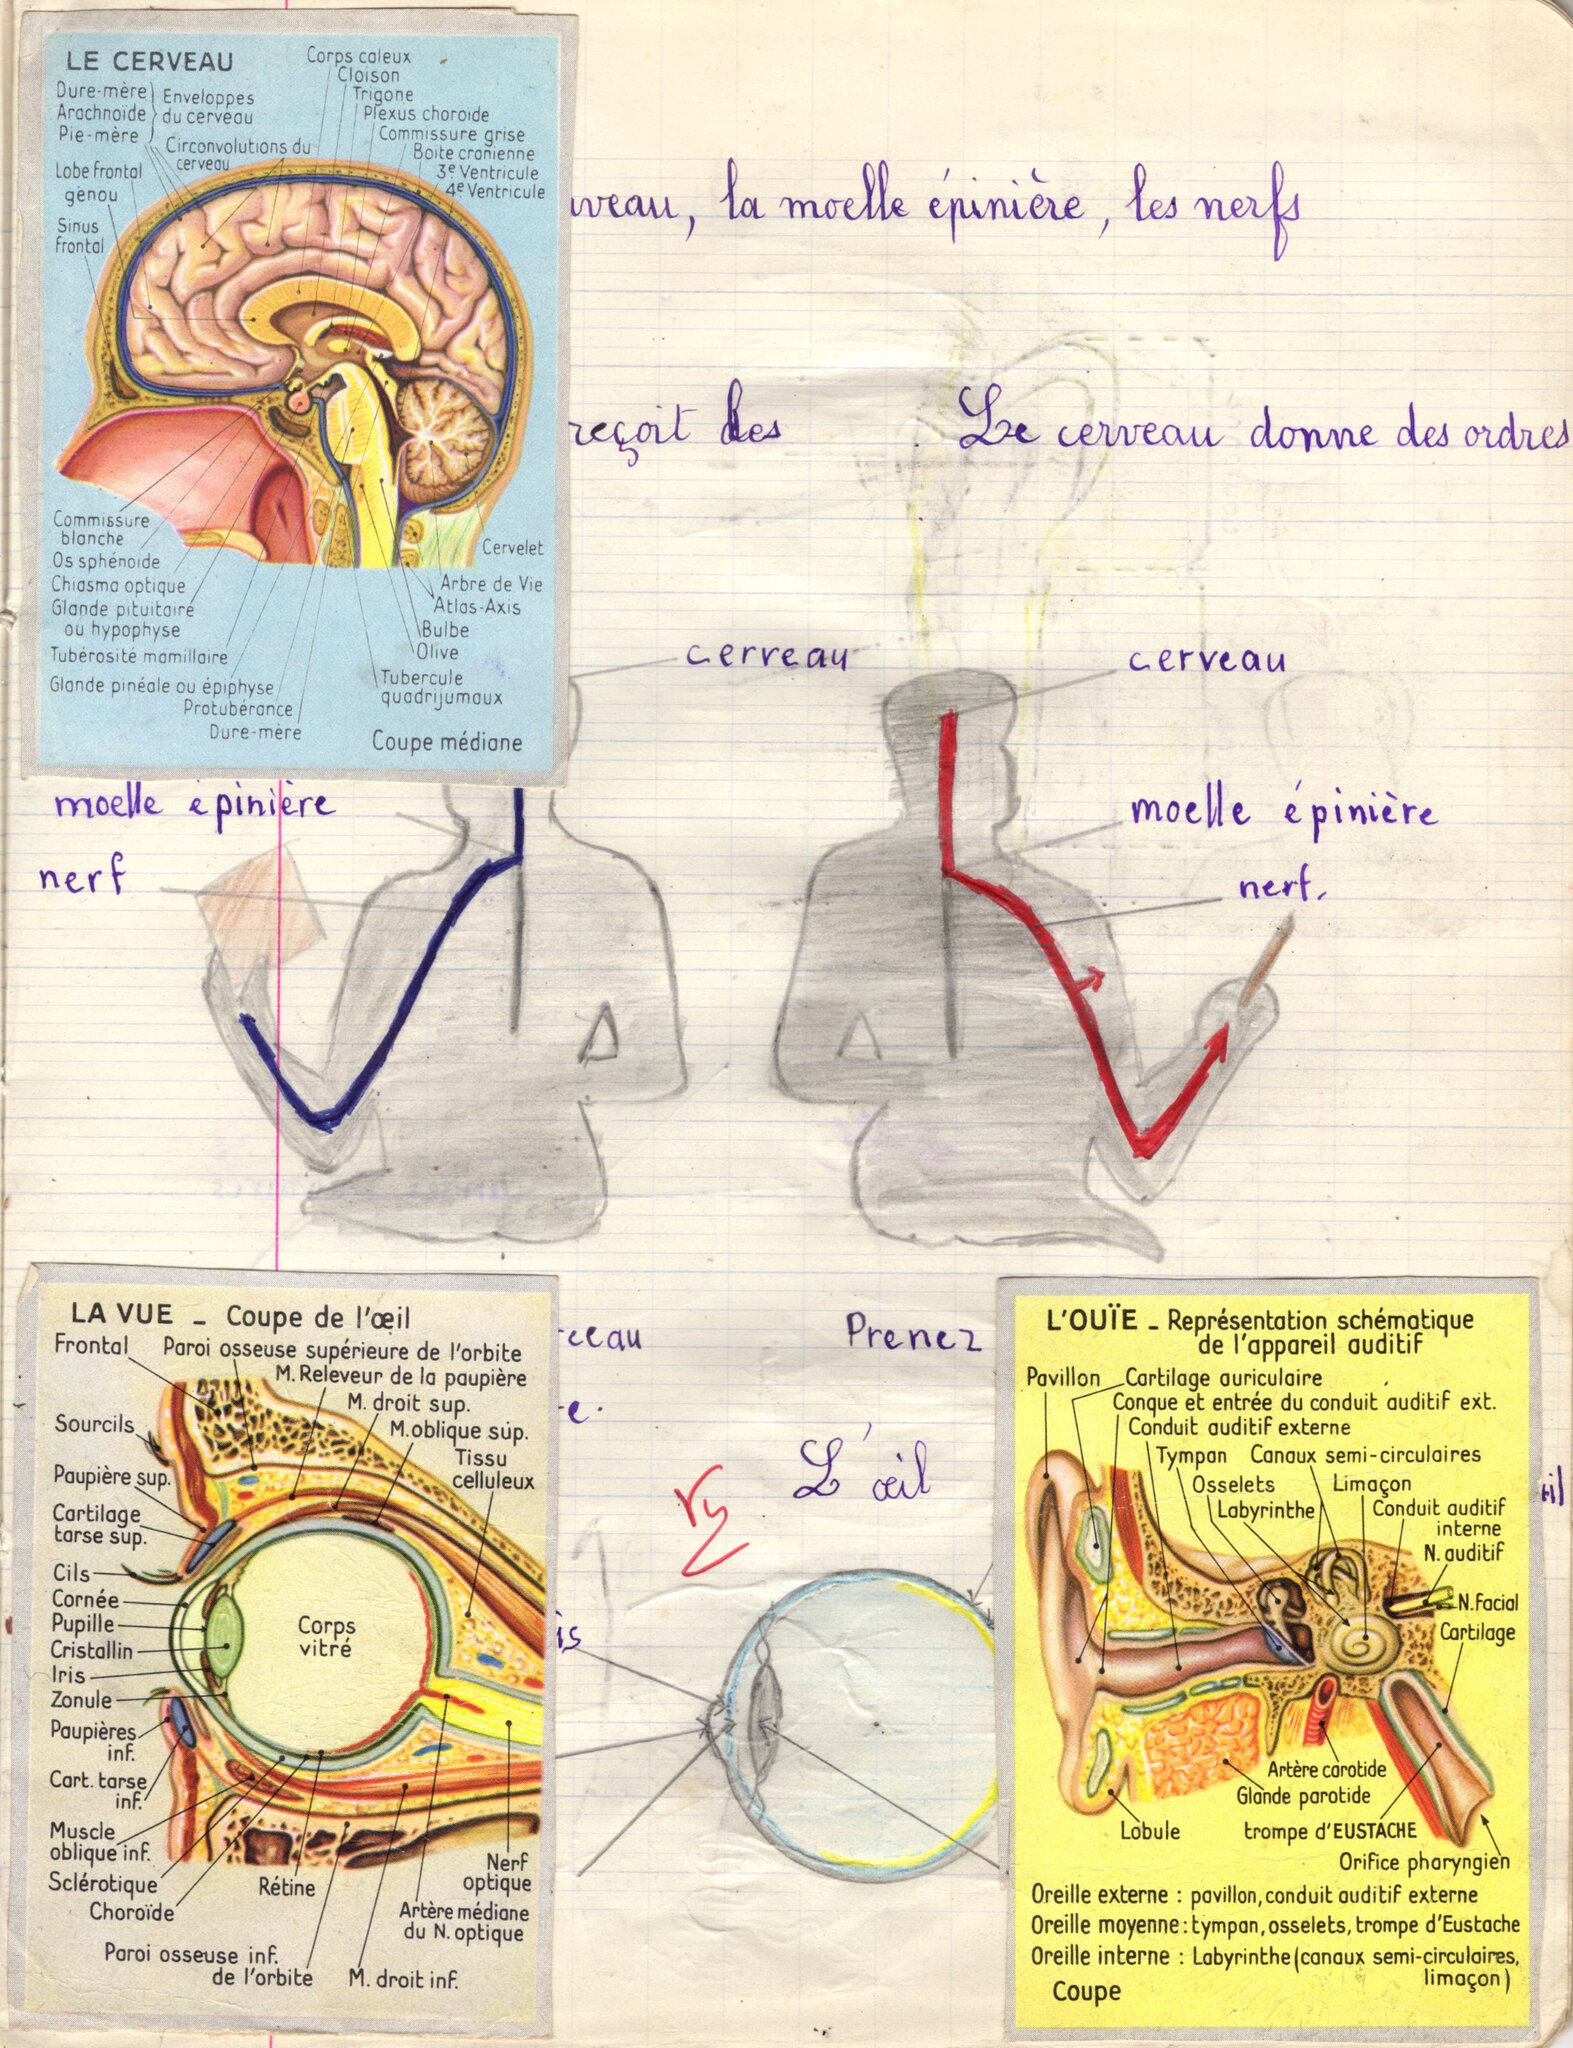 LE CERVEAU
Dure-mère
Arachnoïde
Pie-mère
Enveloppes
du cerveau
Circonvolutions du
cerveau
Lobe frontal
genou
Sinus
frontal
Corps caleux
Cloison
Trigone
Plexus choroïde
Commissure grise
Boite cranienne
3e Ventricule
4e Ventricule
Commissure
blanche
Os sphénoïde
Chiasma optique
Glande pituitaire
ou hypophyse
Tubérosité mamillaire
Glande pinéale ou épiphyse
Protubérance
Dure-mère
Cervelet
Arbre de Vie
Atlas-Axis
Bulbe
Olive
Tubercule
quadrijumaux
Coupe médiane
la moelle épinière, les nerfs
reçoit des
Le cerveau donne des ordres
cerveau
cerveau
moelle épinière
nerf
moelle épinière
nerf.
LA VUE - Coupe de l'œil
Frontal
Paroi osseuse supérieure de l'orbite
M. Releveur de la paupière
M. droit sup.
M. oblique sup.
Tissu
celluleux
Sourcils
Paupière sup.
Cartilage
tarse sup.
Cils
Cornée
Pupille
Cristallin
Iris
Zonule
Paupières
inf.
Cart. tarse
inf.
Muscle
oblique inf.
Sclérotique
Choroïde
Rétine
Corps
vitré
Nerf
optique
Artère médiane
du N. optique
Paroi osseuse inf.
de l'orbite
M. droit inf.
Prenez
L'œil
L'OUÏE - Représentation schématique
de l'appareil auditif
Pavillon
Cartilage auriculaire
Conque et entrée du conduit auditif ext.
Conduit auditif externe
Tympan
Canaux semi-circulaires
Osselets
Limaçon
Labyrinthe
Conduit auditif
interne
N. auditif
N. Facial
Cartilage
Artère carotide
Glande parotide
Lobule
trompe d'EUSTACHE
Orifice pharyngien
Oreille externe : pavillon, conduit auditif externe
Oreille moyenne : tympan, osselets, trompe d'Eustache
Oreille interne : Labyrinthe (canaux semi-circulaires,
limaçon)
Coupe